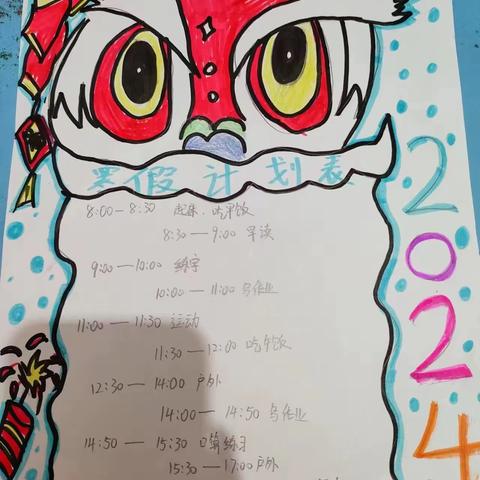 寒假计划表
2024
8:00—8:30 起床、吃早饭
8:30—9:00 早读
9:00—10:00 练字
10:00—11:00 写作业
11:00—11:30 运动
11:30—12:00 吃午饭
12:30—14:00 户外
14:00—14:50 写作业
14:50—15:30 口算练习
15:30—17:00 户外